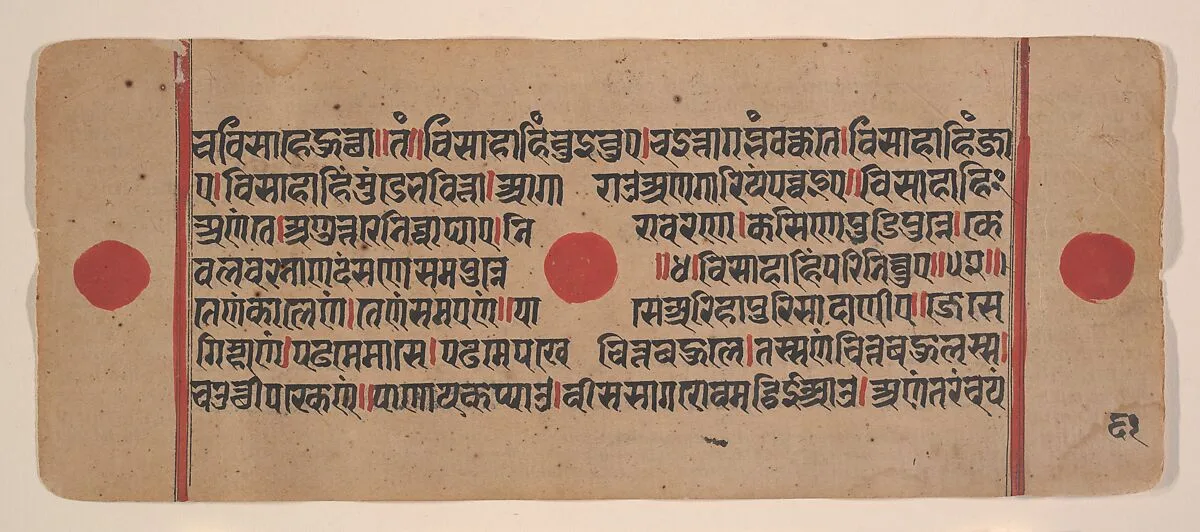 चविसाहे हुत्था॥तं॥विसाहाहिं चुए चुए।चइत्ता गब्भं वक्कंते।विसाहाहिं जा
ए।विसाहाहिं मुंडे भवित्ता।अगा राओ अणगारियं पव्वइए॥विसाहाहिंः
अणंते।अणुत्तरे निव्वाघाए।नि रावरणे।कसिणे पडिपुन्ने।के
वलवरनाणदंसणे समुप्पन्ने ॥ध।विसाहाहिं परिनिव्वुए॥५२॥।
तेणं कालेणं।तेणं समएणं॥पा से अरिहा पुरिसादाणीए॥जे से
गिम्हाणं।पढमे मासे।पढमे पखे चित्तबहुले।तस्स णं चित्तबहुलस्स।
चउत्थीपरकेणं॥पाणायकप्पाओ।वीससागरोवमट्ठिईआओ।अणंतरं चयं
६१